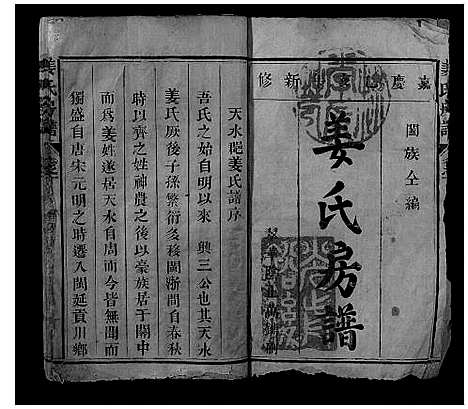 嘉慶
新修
闔族仝編
姜氏房譜
天水郡姜氏譜序
吾氏之始自明以來 興三公也其天水
姜氏厥後子孫繁衍多移閩浙間自春秋
時以齊之姓神農之後以豪族居于關中
而爲姜姓遂居天水自周而今皆無聞而
獨盛自唐宋元明之時遷入閩延貢川鄉
姜氏房譜